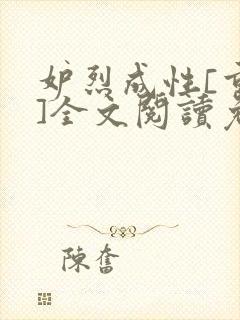 妒烈成性[重
]全文閱讀免
陳奮